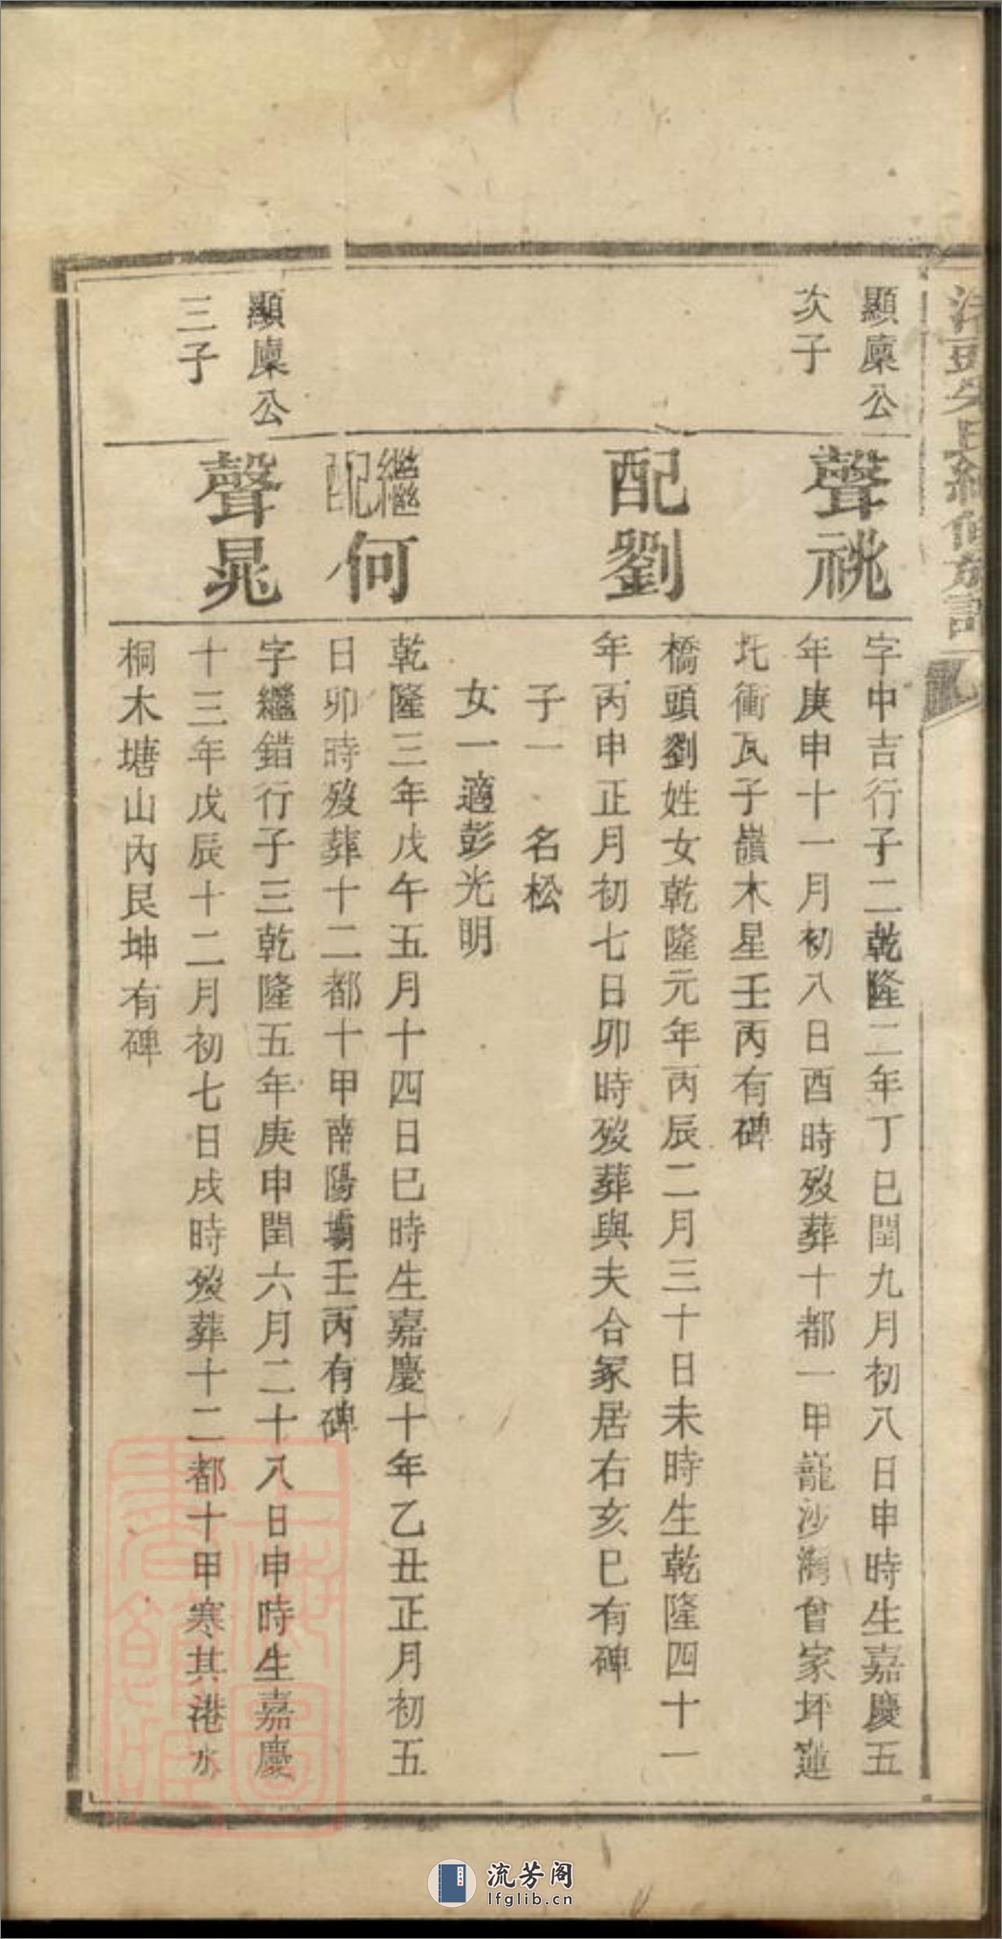 氏續修族譜
顯廩公
次子
聲祧
字中吉行子二乾隆二年丁巳閏九月初八日申時生嘉慶五
年庚申十一月初八日酉時歿葬十都一甲巃沙灣曾家坪蓮
圫衝瓦子嶺木星壬丙有碑
配劉
橋頭劉姓女乾隆元年丙辰二月三十日未時生乾隆四十一
年丙申正月初七日卯時歿葬與夫合冢居右亥巳有碑
子一 名松
女一適彭光明
繼配何
乾隆三年戊午五月十四日巳時生嘉慶十年乙丑正月初五
日卯時歿葬十二都十甲南陽壩壬丙有碑
顯廩公
三子
聲晃
字繼錯行子三乾隆五年庚申閏六月二十八日申時生嘉慶
十三年戊辰十二月初七日戌時歿葬十二都十甲寒其港水
桐木塘山內艮坤有碑
上海圖書館藏
流芳阁
lfglib.cn